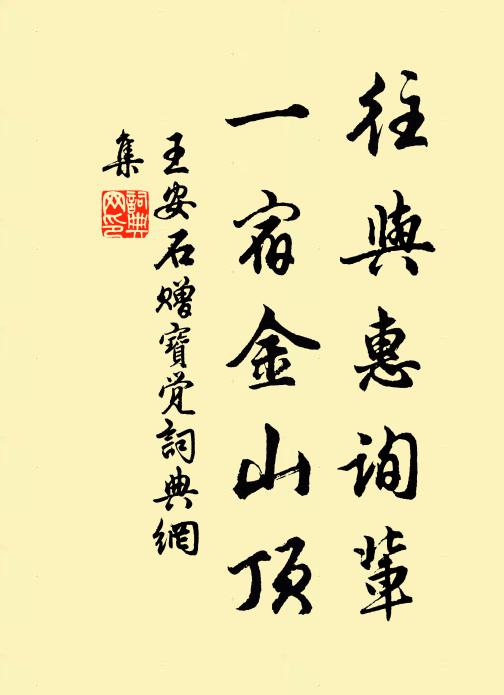 往與惠詢輩
一宿金山頂
王安石贈寶觉詞典網
集
詞典網印